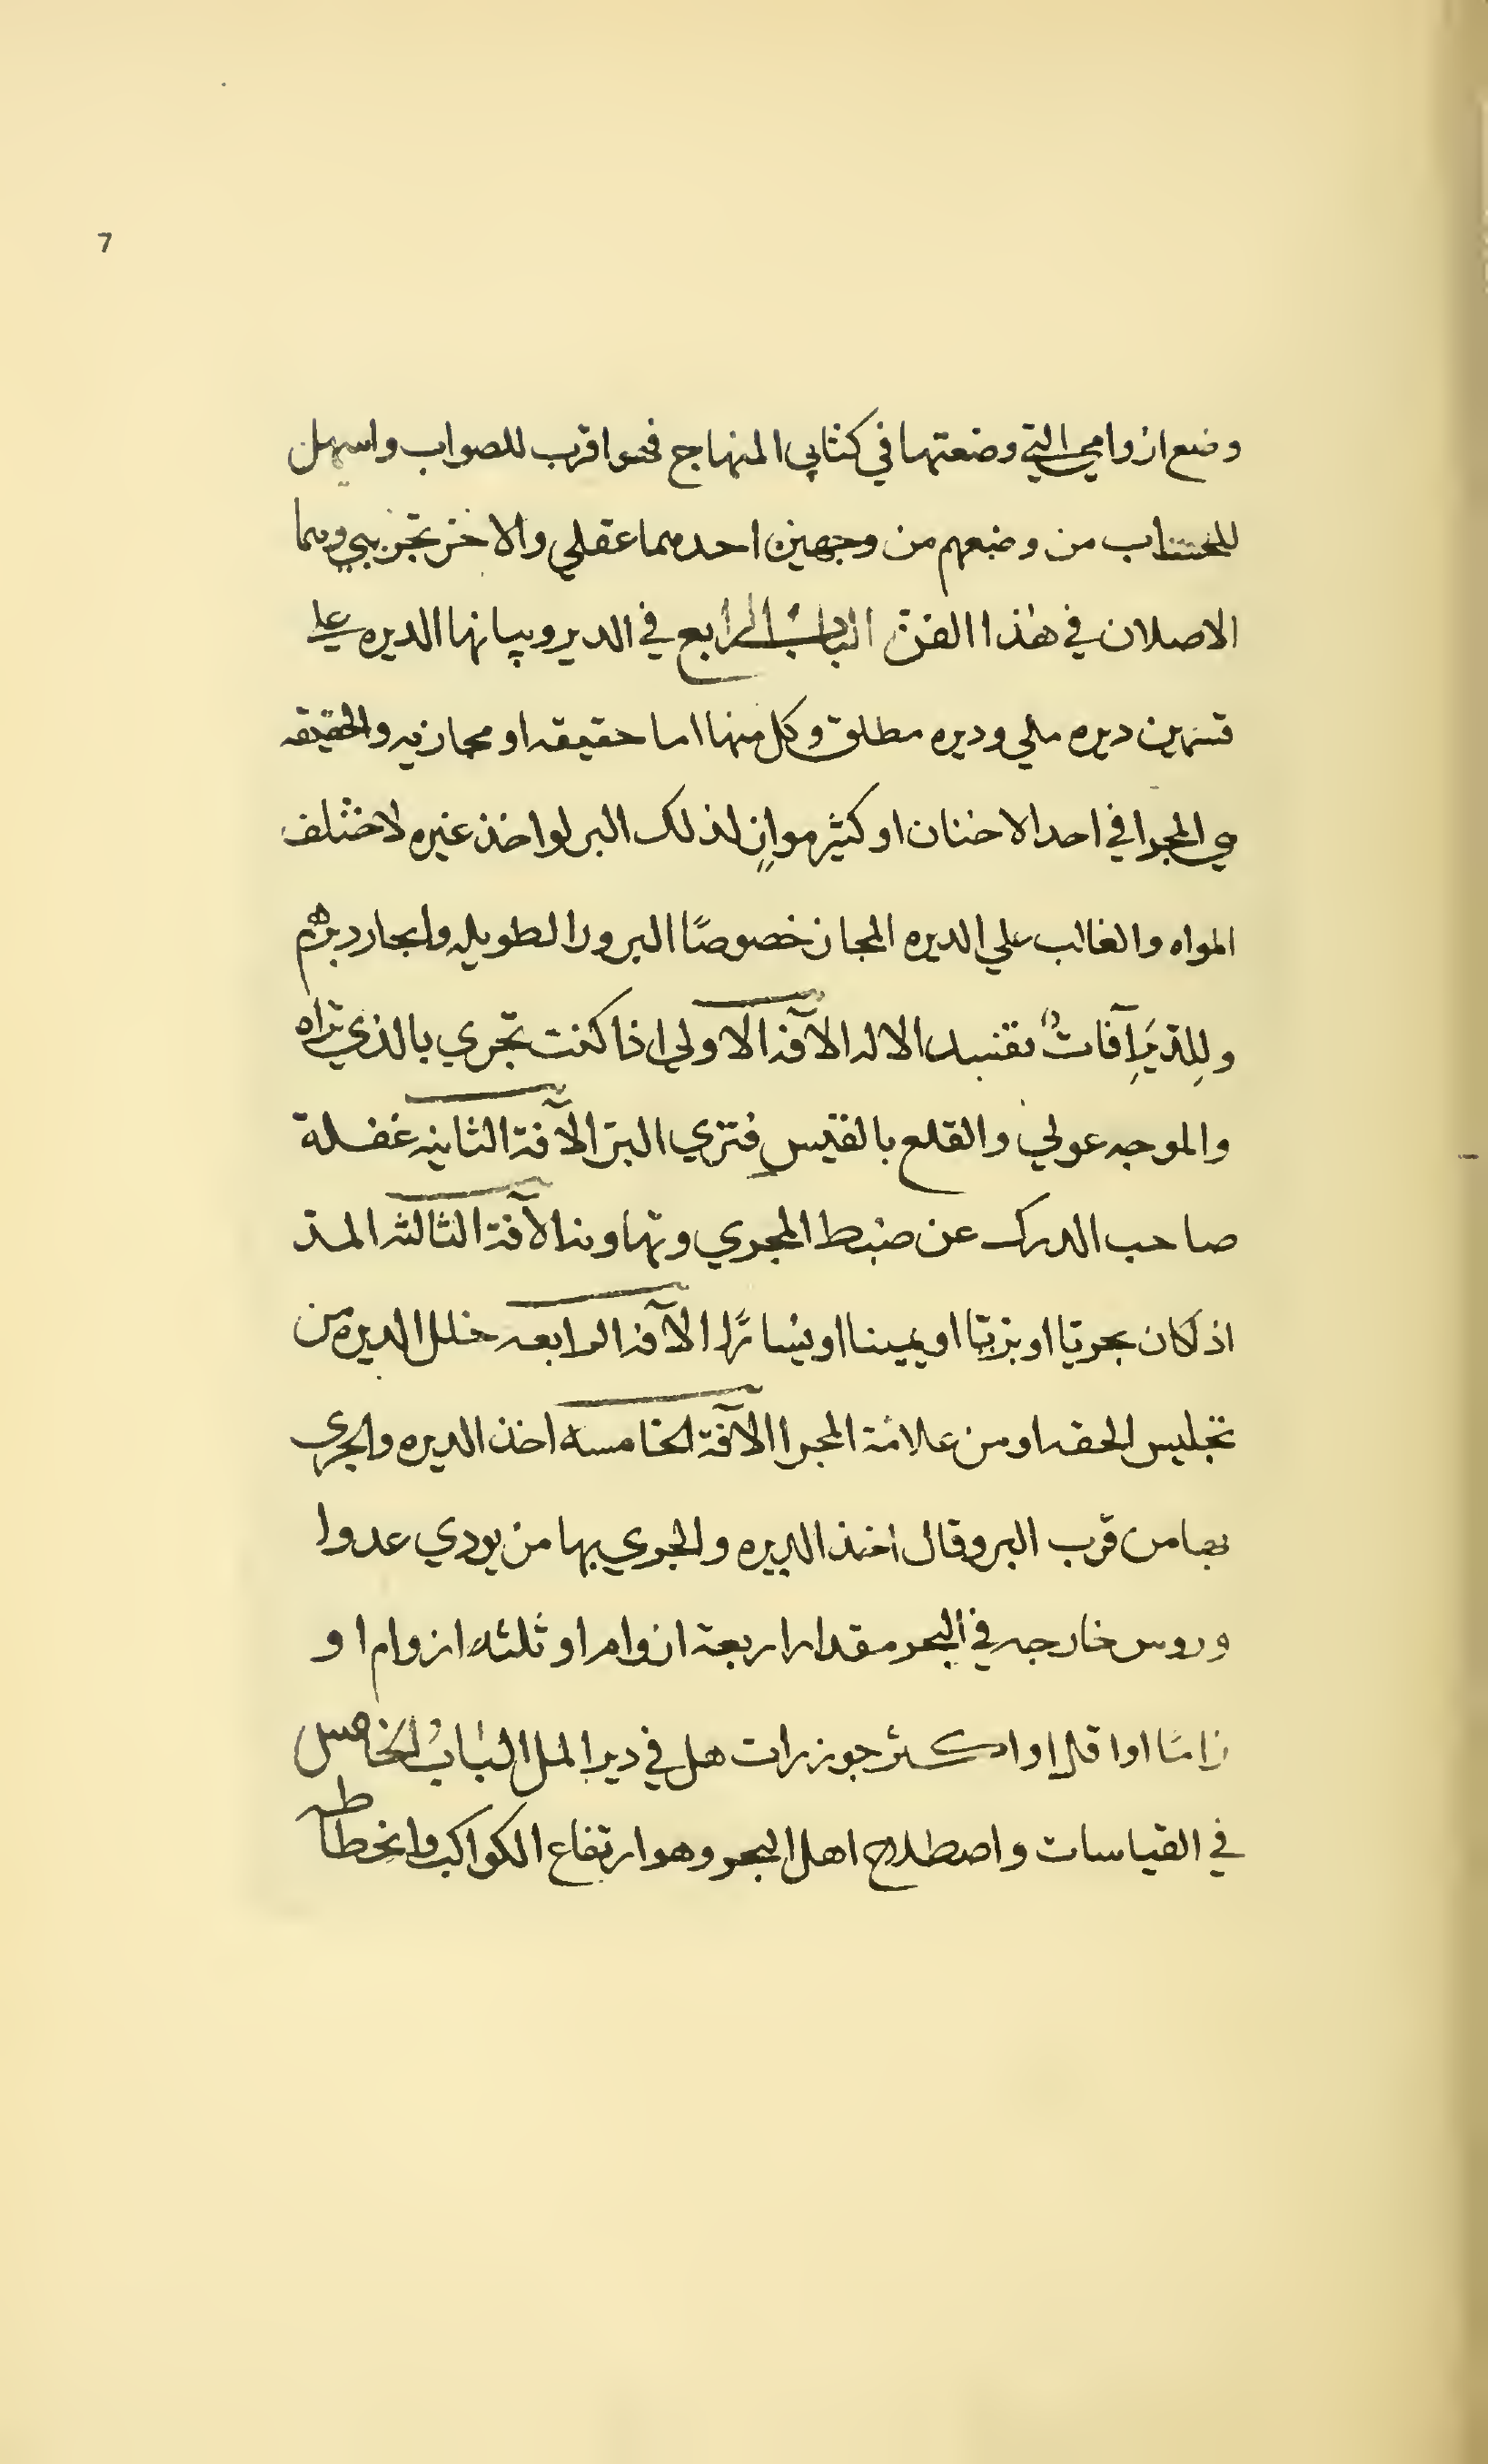 7
وضع ازوامي التي وضعتها في كتابي المنهاج فهو اقرب للصواب واسهل
للحساب من وضعهم من وجهين احدهما عقلي والاخر تجريبي وهما
الاصلان في هذا الفن الباب الرابع في الدير وبيانها الديره علي
قسمين ديره ملي وديره مطلق وكل منها اما حقيقه او مجازيه والحقيقه
هي المجرا في احد الاخنان او كثير موانٍ لذلك البر لو اخذ غيره لاختلف
المواه والغالب علي الديره المجاز خصوصًا البرور الطويله وابحار ديرهم
وللدير آفات الاله الآفه الاولي اذا كنت تجري بالذي تراه
والموجه عولي والقلع بالفتيس فتري البر الآفة الثانيه غفلة
صاحب الدرك عن ضبط المجري وتهاونه الآفة الثالثه المد
اذ كان بحريا او بريا او يمينا او يسارًا الآفه الرابعه خلل الديره من
تجليس الحقه او من علامة المجرا الآفة الخامسه اخذ الديره والجري
بها من قرب البر وقال اخذ الديره والجري بها من يودي عدوا
وروس خارجه في البحر مقدار اربعة ازوام او ثلثه ازوام او
زامًا او اقل او اكثر جوزرات هل في دير المل الباب الخامس
في القياسات واصطلاح اهل البحر وهو ارتفاع الكواكب وانحطاطه